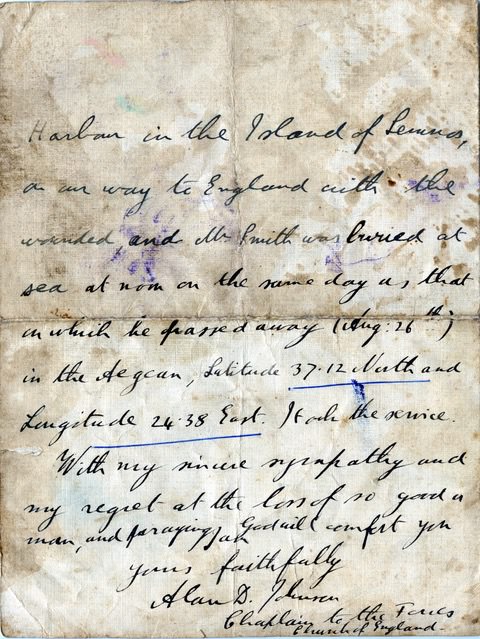 Harbour in the Island of Lemnos,
on our way to England with the
wounded, and Mr Smith was buried at
sea at noon on the same day as that
on which he passed away (Aug: 26th)
in the Aegean, Latitude 37.12 North and
Longitude 24.38 East. I took the service.
With my sincere sympathy and
my regret at the loss of so good a
man, and praying that God will comfort you
Yours faithfully
Alan D. Johnson
Chaplain to the Forces
Church of England.